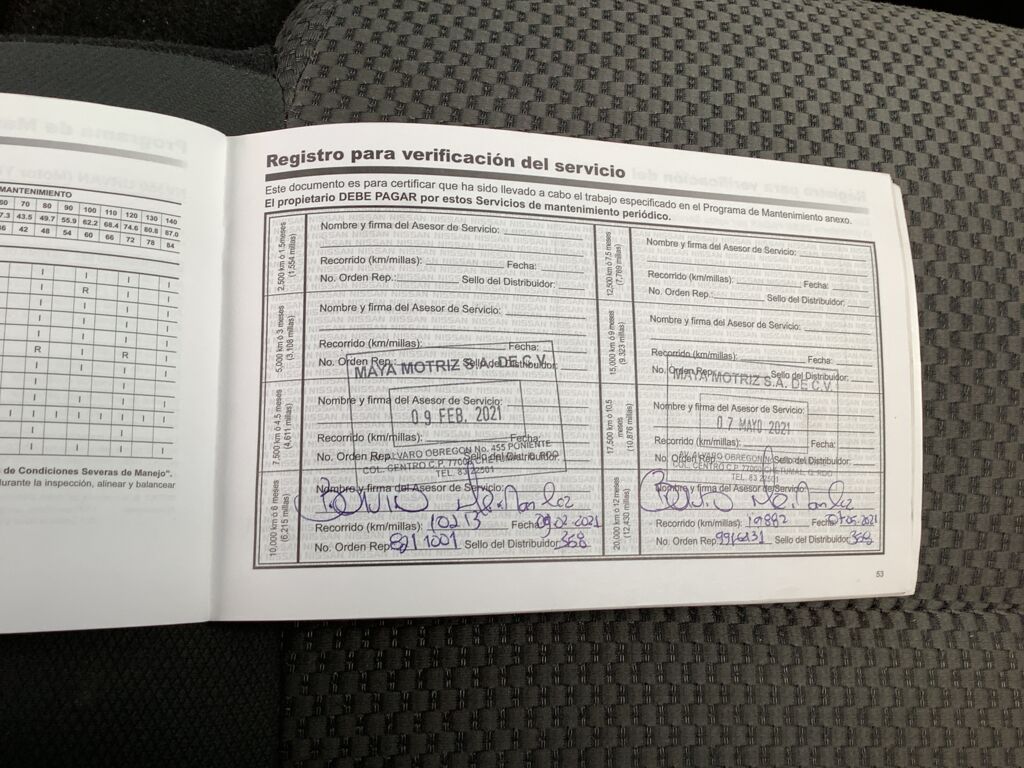 MANTENIMIENTO
60 70 80 90 100 110 120 130 140
37.3 43.5 49.7 55.9 62.2 68.4 74.6 80.8 87.0
36 42 48 54 60 66 72 78 84
I I I I
I R I I
I I I I
I I I I
R R I
s de Condiciones Severas de Manejo".
durante la inspección, alinear y balancear
Registro para verificación del servicio
Este documento es para certificar que ha sido llevado a cabo el trabajo especificado en el Programa de Mantenimiento anexo.
El propietario DEBE PAGAR por estos Servicios de mantenimiento periódico.
2,500 km ó 1.5 meses
(1,554 millas)
Nombre y firma del Asesor de Servicio:
Recorrido (km/millas): Fecha:
No. Orden Rep.: Sello del Distribuidor:
5,000 km ó 3 meses
(3,108 millas)
Nombre y firma del Asesor de Servicio:
Recorrido (km/millas): Fecha:
No. Orden Rep.: Sello del Distribuidor:
7,500 km ó 4.5 meses
(4,611 millas)
Nombre y firma del Asesor de Servicio:
Recorrido (km/millas): Fecha:
No. Orden Rep. Sello del Distribuidor:
MAYA MOTRIZ S.A. DE C.V.
09 FEB. 2021
AV. ALVARO OBREGON No. 455 PONIENTE
COL. CENTRO C.P. 77000 CHETUMAL Q. ROO
TEL. 83 22501
10,000 km ó 6 meses
(6,215 millas)
Nombre y firma del Asesor de Servicio:
Recorrido (km/millas): 10213 Fecha: 09-02-2021
No. Orden Rep. 8911001 Sello del Distribuidor: 368
12,500 km ó 7.5 meses
(7,769 millas)
Nombre y firma del Asesor de Servicio:
Recorrido (km/millas): Fecha:
No. Orden Rep.: Sello del Distribuidor:
15,000 km ó 9 meses
(9,323 millas)
Nombre y firma del Asesor de Servicio:
Recorrido (km/millas): Fecha:
No. Orden Rep. Sello del Distribuidor:
17,500 km ó 10.5
meses
(10,876 millas)
Nombre y firma del Asesor de Servicio:
Recorrido (km/millas): Fecha:
No. Orden Rep. Sello del Distribuidor:
MAYA MOTRIZ S.A. DE C.V.
07 MAYO 2021
AV. ALVARO OBREGON
COL. CENTRO C.P. 77000 CHETUMAL Q. ROO
TEL. 83 22501
20,000 km ó 12 meses
(12,430 millas)
Nombre y firma del Asesor de Servicio
Recorrido (km/millas): 19882 Fecha: 07-05-2021
No. Orden Rep. Sello del Distribuidor: 368
53